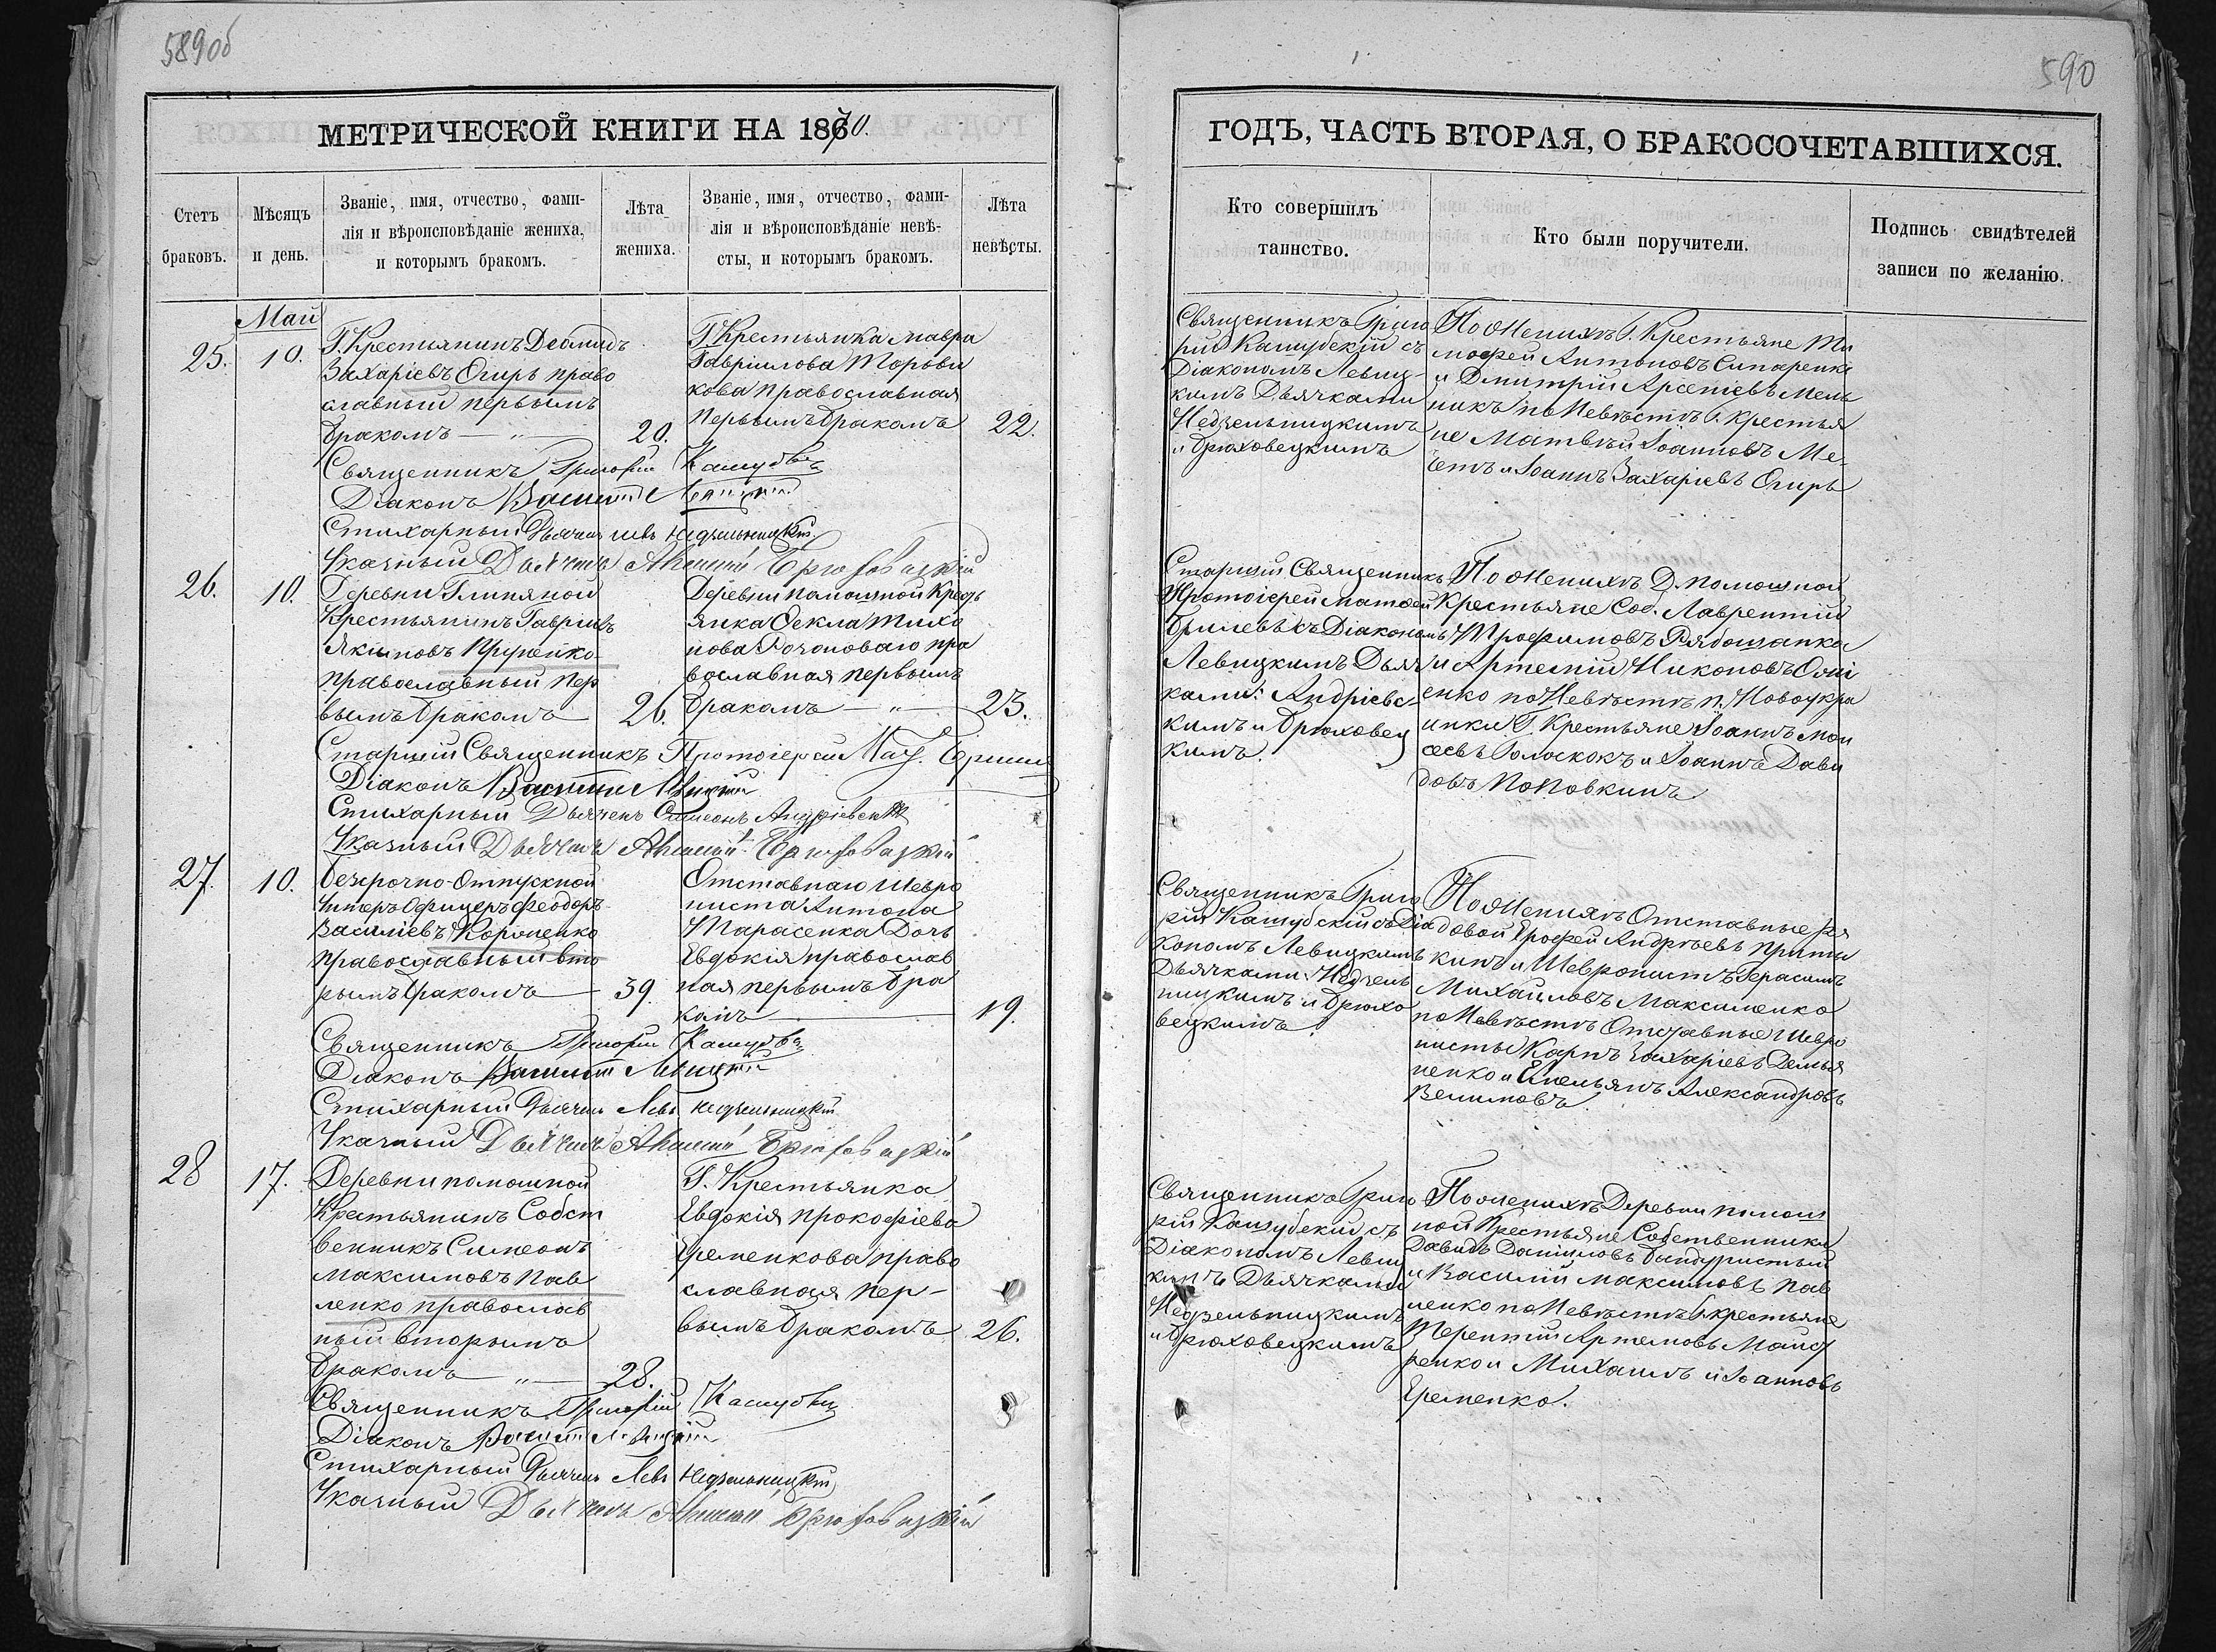 589об
590
МЕТРИЧЕСКОЙ КНИГИ НА 1870.
ГОДЪ, ЧАСТЬ ВТОРАЯ, О БРАКОСОЧЕТАВШИХСЯ.
Счетъ
браковъ.
Мѣсяцъ
и день.
Званіе, имя, отчество, фами-
лія и вѣроисповѣданіе жениха,
и которымъ бракомъ.
Лѣта
жениха.
Званіе, имя, отчество, фами-
лія и вѣроисповѣданіе невѣ-
сты, и которымъ бракомъ.
Лѣта
невѣсты.
Кто совершилъ
таинство.
Кто были поручители.
Подпись свидѣтелей
записи по желанію.
Май
25.
10.
Г. Крестьянинъ
Захаріевъ Огирь право
славный первымъ
бракомъ
20.
Г. Крестьянка Мавра
Гавриилова
кова православная
первымъ бракомъ
22.
Священникъ Григо
рій Кашубскій съ
Діакономъ Левиц-
кимъ Дьячками
Недзельницкимъ
и Брюховецкимъ
По Женихѣ Г. Крестьяне Ти
мофей Антоновъ
и Дмитрій Арсеніевъ Мель
никъ по Невѣстѣ Г. Крестья
не Матвѣй Іоанновъ Ме-
и Іоаннъ Захаріевъ Огирь
Священникъ Григорій
Діаконъ Василій Левицкій
Стихарный Дьячекъ Левъ Недзельницкій
Указный Дьячекъ Брюховецкій
26.
10.
Деревни Глиняной
Крестьянинъ Гавріилъ
Якимовъ
православный пер
вымъ бракомъ
26.
Деревни Помошной Крест
янка Ѳекла Тихо
нова пра
вославная первымъ
бракомъ
23.
Старшій Священникъ
Протоіерей Матѳей
съ Діакономъ
Левицкимъ Дьяч
ками: Андріевс-
кимъ и Брюховец
кимъ.
По Женихѣ Д. Помошной
Крестьяне Соб. Лаврентій
Трофимовъ Рябошапка
и Артемій Никоновъ
енко по Невѣстѣ п. Новоукра
инки Г. Крестьяне Іоаннъ Мои
сеевъ Голоскокъ и Іоаннъ Дави
довъ Поповкинъ
Старшій Священникъ Протоіерей
Діаконъ Василій Левицкій
Стихарный Дьячекъ Симеонъ Андріевскій
Указный Дьячекъ Брюховецкій
27.
10.
Безсрочно-Отпускной
Унтеръ Офицеръ Феодоръ
Василіевъ
православный вто
рымъ бракомъ
39.
Отставнаго Шевро
ниста Антона
Тарасенка Дочь
Евдокія православ
ная первымъ бра
комъ
19.
Священникъ Григо
рій Кашубскій съ Діа
кономъ Левицкимъ
Дьячками: Недзель
ницкимъ и Брюхо
вецкимъ.
По Женихѣ Отставные Ря
довой Ерофей Андреевъ Приты
кинъ и Шевронистъ Герасимъ
Михайловъ Максименко
по Невѣстѣ Отставные Шевро
нисты Карпъ Захаріевъ Демья
ненко и Емельянъ Александровъ
Священникъ Григорій
Діаконъ Василій Левицкій
Стихарный Дьячекъ Левъ Недзельницкій
Указный Дьячекъ Брюховецкій
28
17.
Деревни Помошной
Крестьянинъ Собст
венникъ Симеонъ
Максимовъ Пав
ленко православ
ный вторымъ
бракомъ
28.
Г. Крестьянка
Евдокія Прокофіева
Еременкова право
славная пер-
вымъ бракомъ
26.
Священникъ Григо
рій Кашубскій съ
Діакономъ Левиц
кимъ Дьячками
Недзельницкимъ
и Брюховецкимъ
По Женихѣ Деревни Помош
ной Крестьяне Собственники
Давидъ Даніиловъ Бандуристый
и Василій Максимовъ Пав
ленко по Невѣстѣ Г. Крестьяне
Терентій Артемовъ
ренко и Михаилъ Іоанновъ
Еременко.
Священникъ Григорій
Діаконъ Василій Левицкій
Стихарный Дьячекъ Левъ Недзельницкій
Указный Дьячекъ Брюховецкій